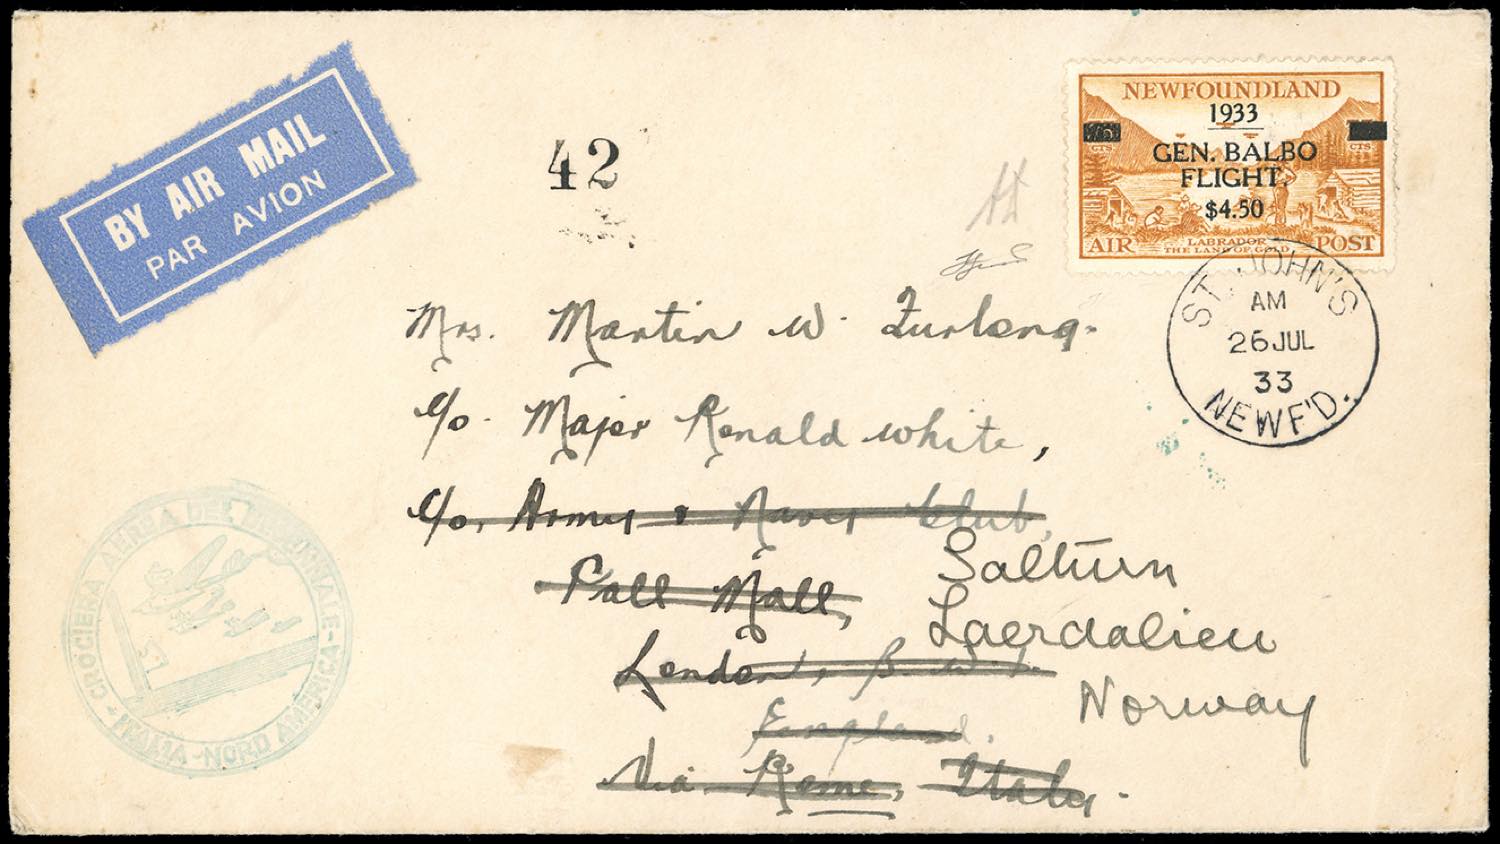 BY AIR MAIL
PAR AVION
42
NEWFOUNDLAND
1933
75
CTS.
CTS.
GEN. BALBO
FLIGHT.
$4.50
AIR
LABRADOR
THE LAND OF GOLD
POST
ST. JOHN'S
AM
26 JUL
33
NEWF'D.
Mrs. Martin W. Furlong.
c/o. Major Ronald White,
c/o, Army & Navy Club,
Pall Mall,
London, S.W.1.
England.
Via Rome, Italy.
Saltun
Laerdalieu
Norway
CROCIERA AEREA DEL DECENNALE
ITALIA - NORD AMERICA